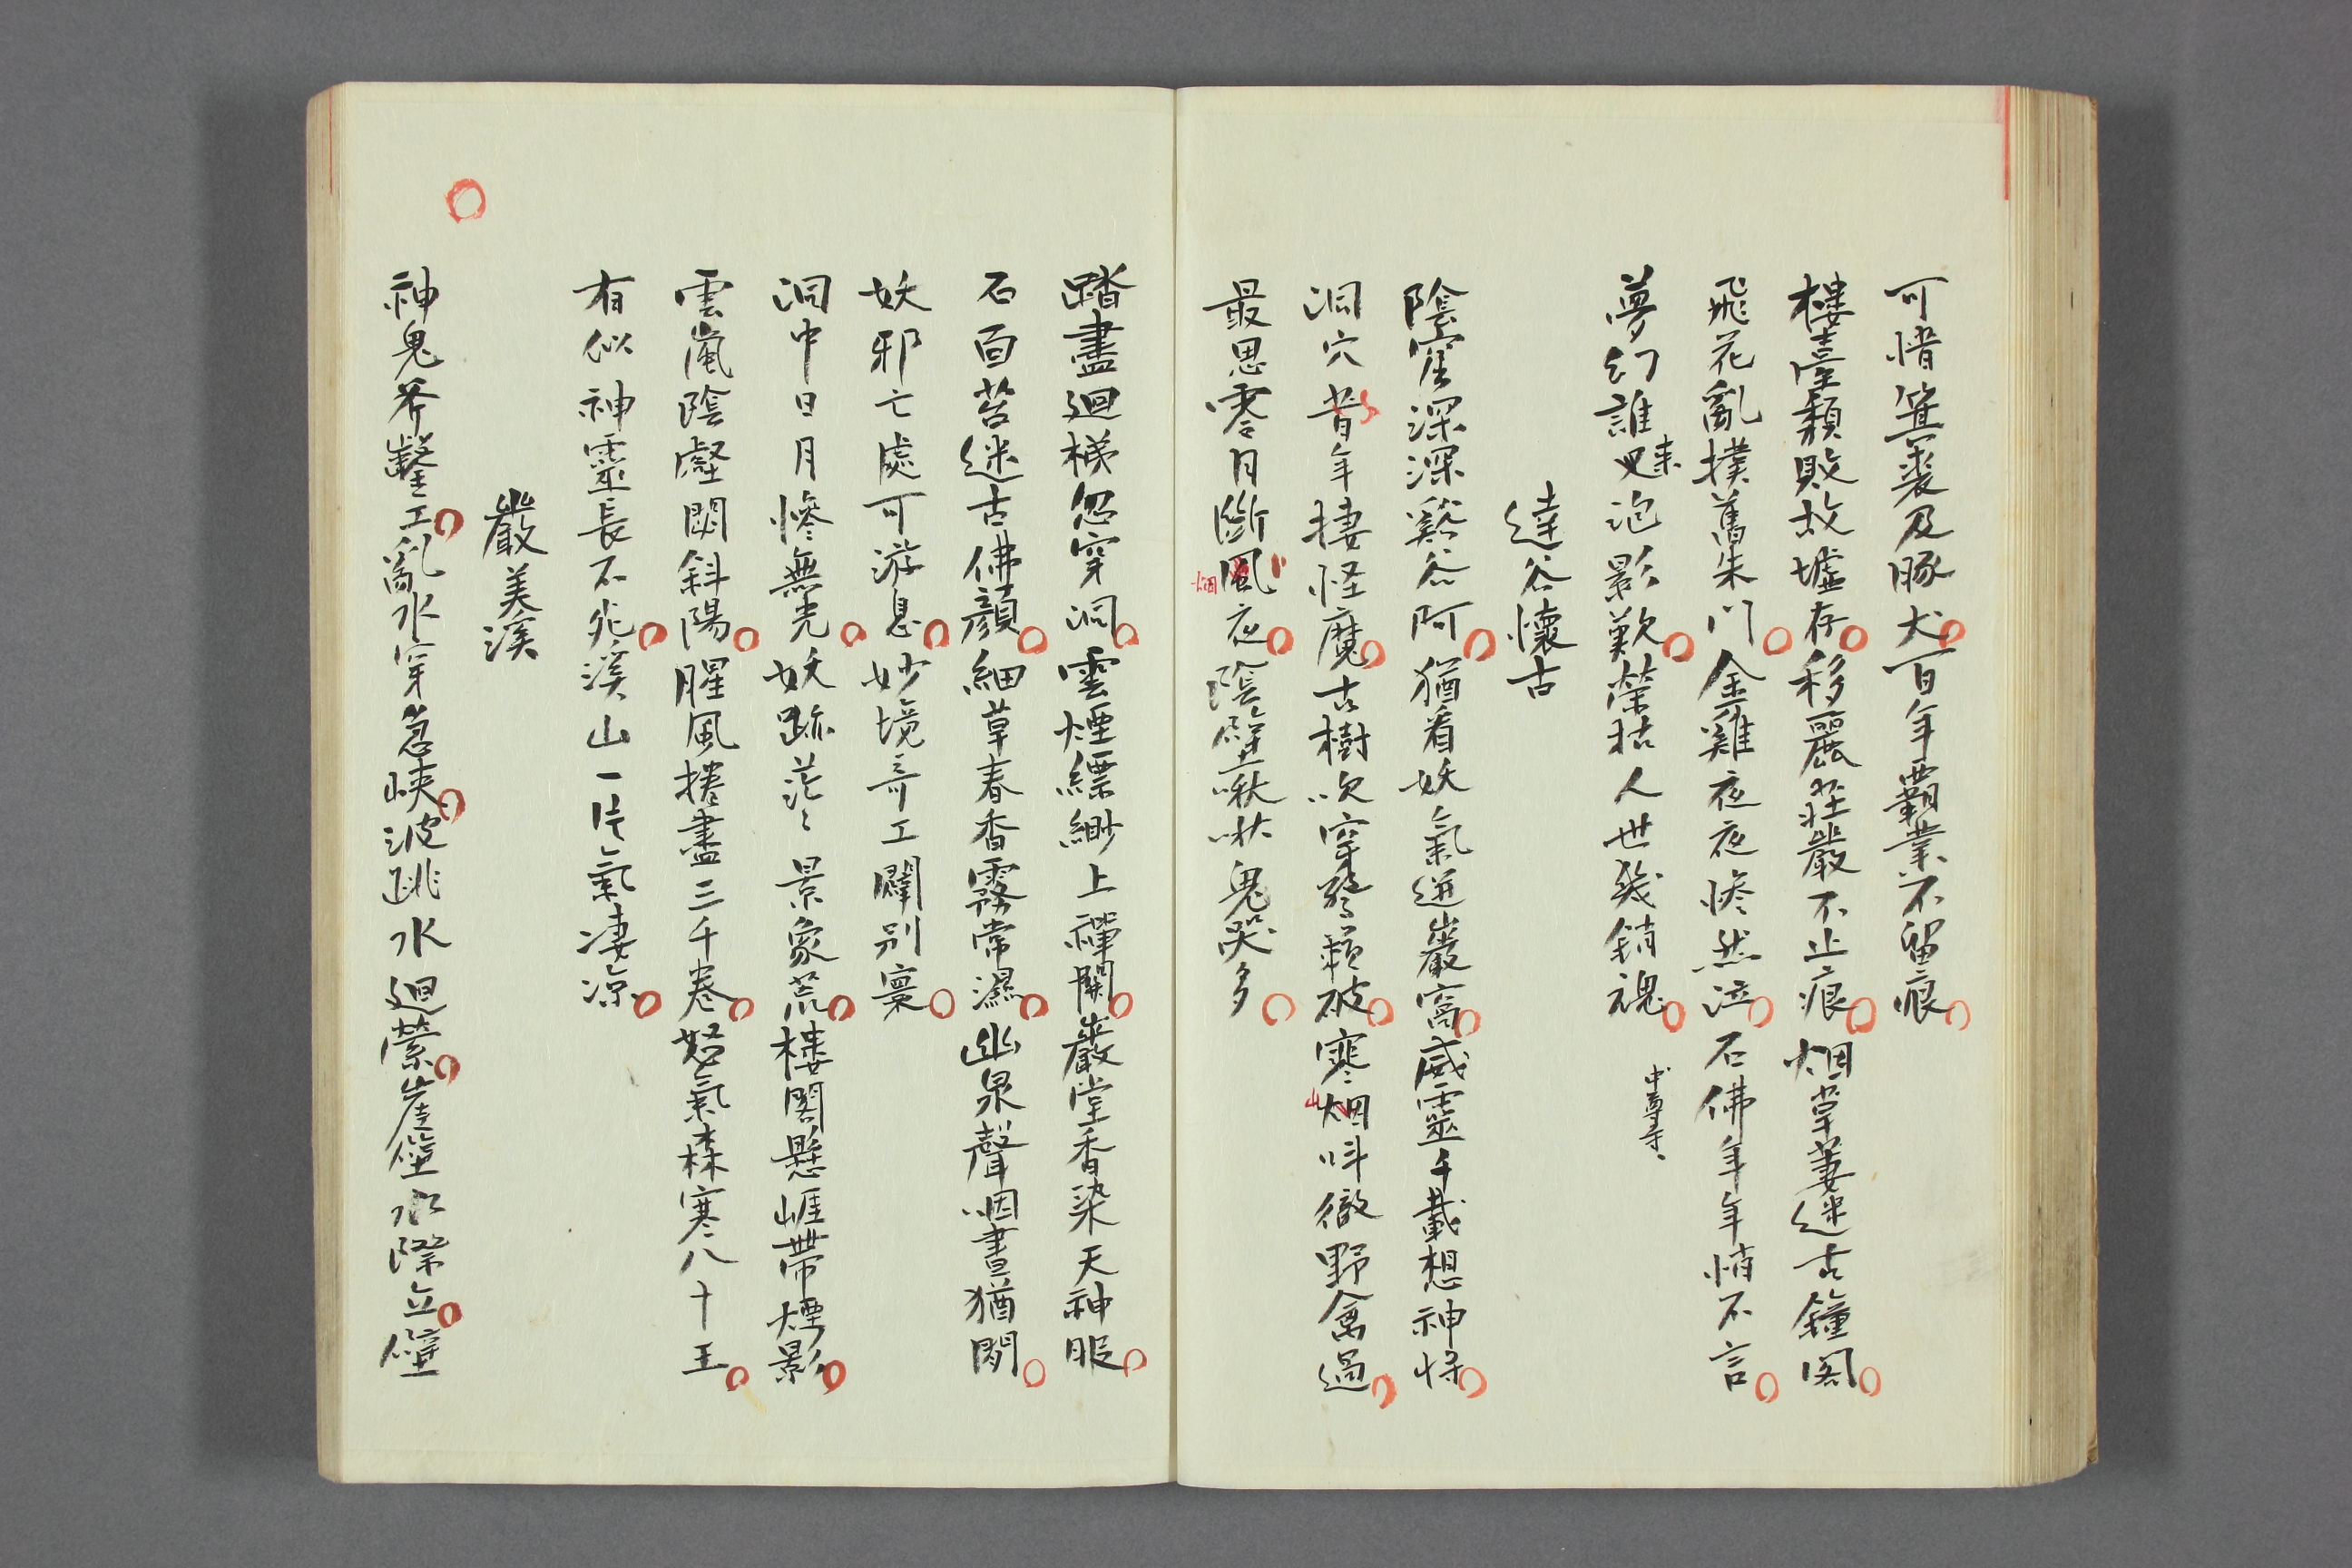 可惜箕裘及豚犬百年覇業不留痕
樓臺頽敗故墟存移麗莊嚴不止痕烟草萋迷古鐘閣
飛花亂撲舊朱門金雞夜夜慘然泣石佛年年悄不言
夢幻誰來泡影歎榮枯人世幾銷魂
中尊寺
達谷懷古
陰窟深深谿谷阿猶看妖氣迸巖窩威靈千載想神將
洞穴昔年棲怪魔古樹吹穿聲籟破寒烟叫徹野禽過
最思零月斷風夜陰壁啾啾鬼哭多
烟
山
踏盡廻梯忽穿洞雲煙縹緲上禪關巖堂香染天神服
石面苔迷古佛顔細草春香霧常濕幽泉聲咽晝猶閑
妖邪亡處可游息妙境奇工闢別寰
洞中日月慘無光妖跡茫々景象荒樓閣懸崕帶煙影
雲嵐陰壑閟斜陽腥風捲盡三千卷怒氣森寒八十王
有似神靈長不死溪山一片氣凄凉
巖美溪
神鬼斧鑿工亂水穿急峽波跳水廻縈崖壁水際立壁